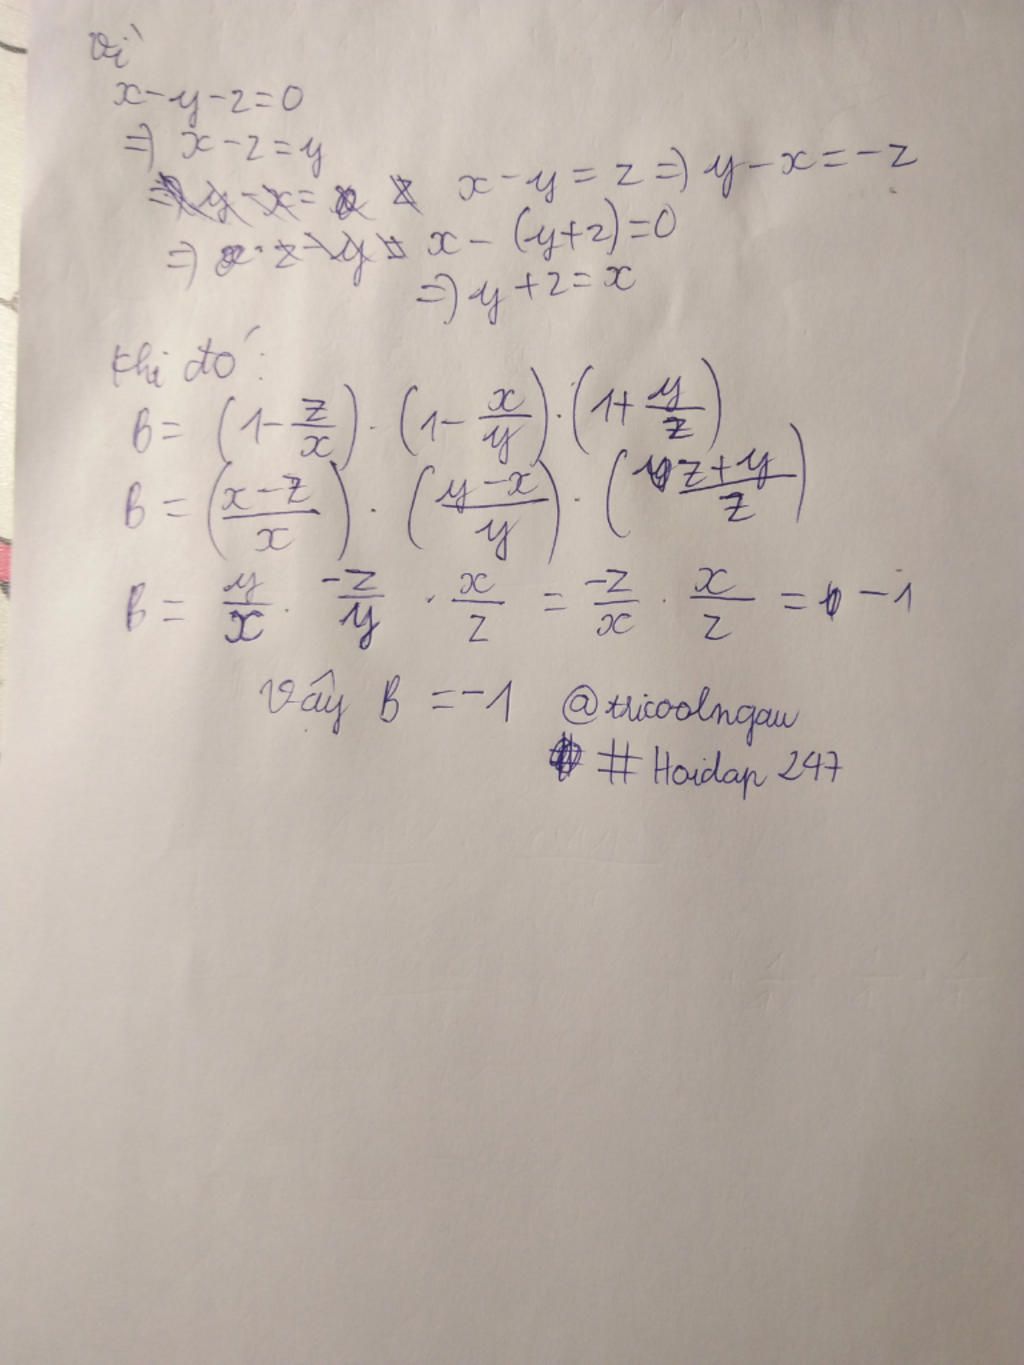 Vì
x-y-z=0
=> x-z=y
x-y=z => y-x=-z
=> x-(y+z)=0
=> y+z=x
Khi đó:
B= (1-z/x).(1-x/y).(1+y/z)
B= (x-z/x).(y-x/y).(z+y/z)
B= y/x . -z/y . x/z = -z/x . x/z = -1
Vây B =-1 @tricoolngau
# Hoidap 247